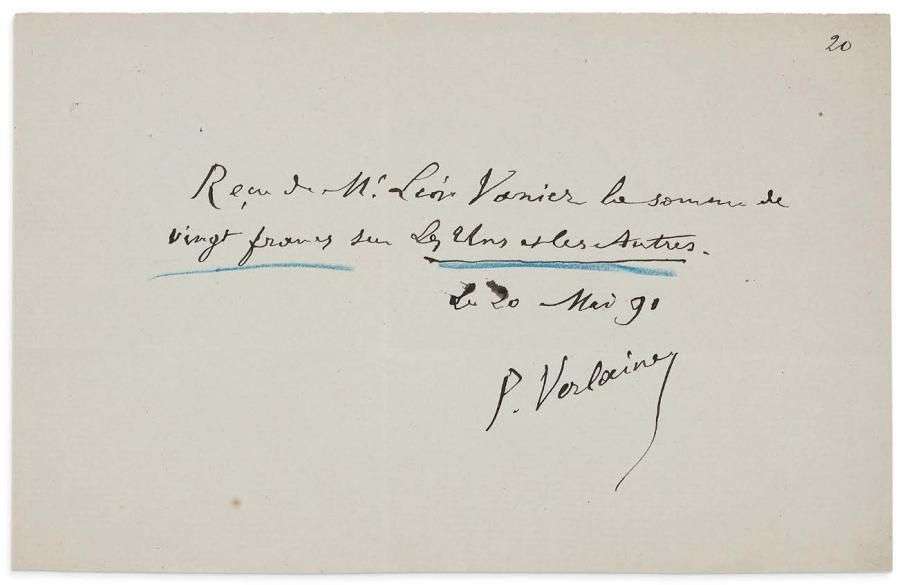 20
Reçu de Mr. Léon Vanier la somme de
vingt francs sur Les Uns et les Autres.
Le 20 Mai 91
P. Verlaine